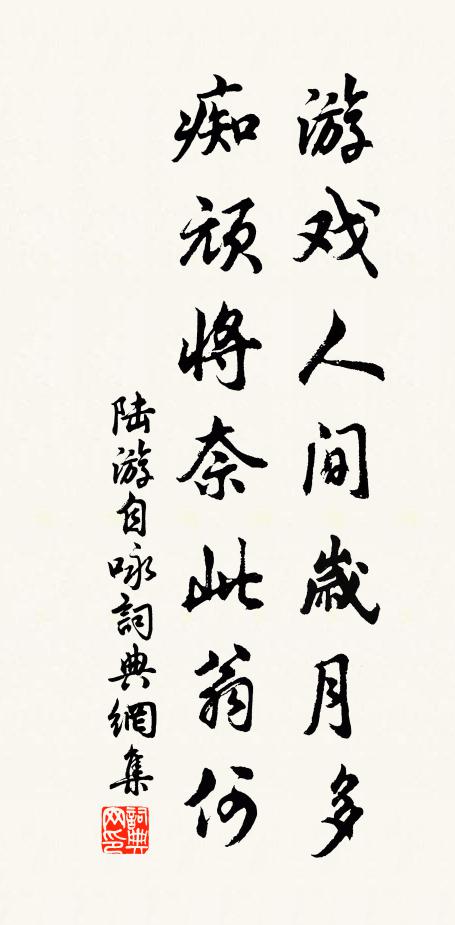 游戏人间岁月多
痴顽将奈此翁何
陆游自咏詞典網集
詞典
网印